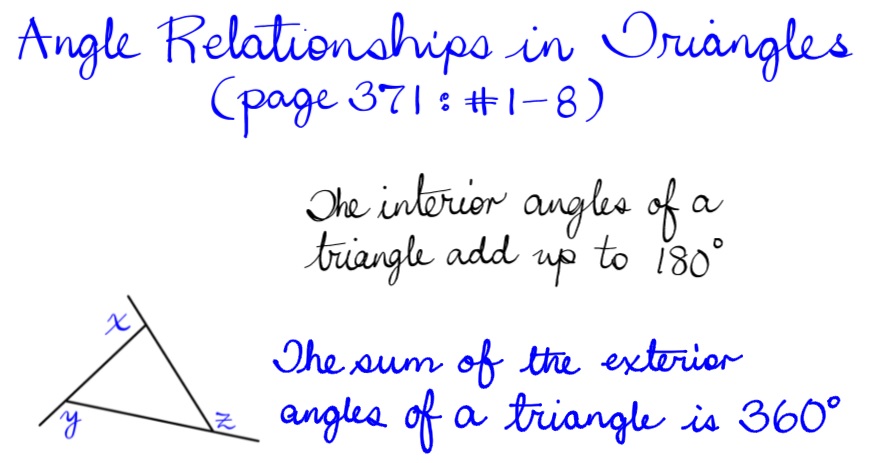 Angle Relationships in Triangles
(page 371 : #1-8)
The interior angles of a
triangle add up to 180°
x
y
z
The sum of the exterior
angles of a triangle is 360°